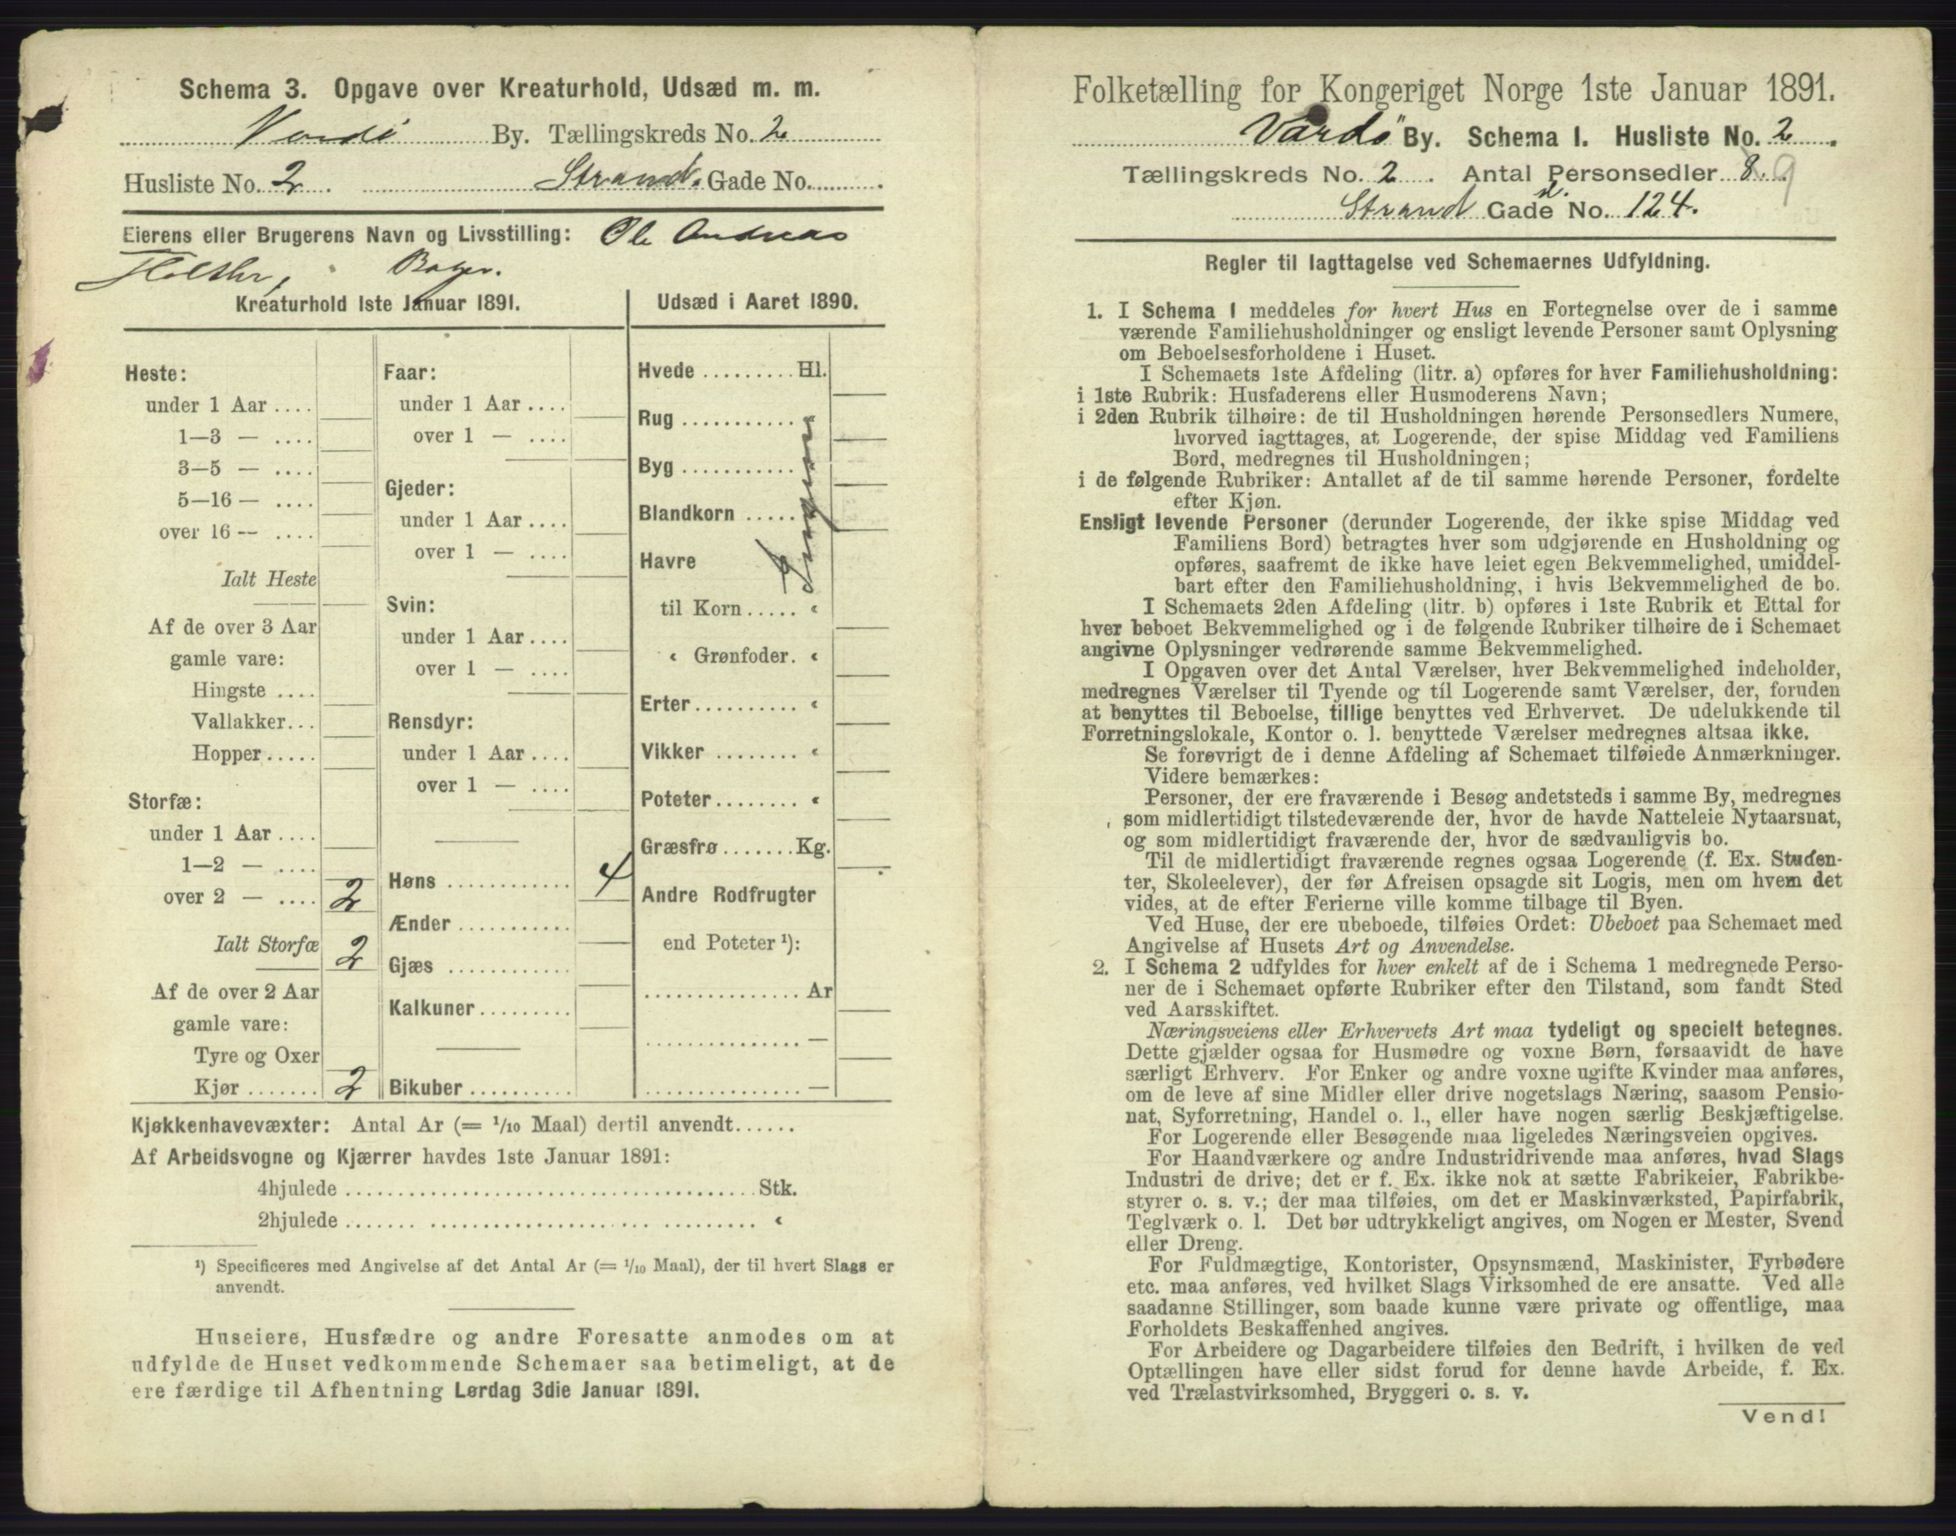 Schema 3. Opgave over Kreaturhold, Udsæd m. m.
Vardö By. Tællingskreds No. 2
Husliste No. 2. Strand. Gade No.
Eierens eller Brugerens Navn og Livsstilling: Ole Andreas
Holther, Bager.
Kreaturhold 1ste Januar 1891.
Heste:
under 1 Aar ....
1—3 — ....
3—5 — ....
5—16 — ....
over 16 — ....
Ialt Heste
Af de over 3 Aar
gamle vare:
Hingste ....
Vallakker...
Hopper.....
Storfæ:
under 1 Aar ....
1—2 — ....
over 2 — .... 2
Ialt Storfæ 2
Af de over 2 Aar
gamle vare:
Tyre og Oxer
Kjør ....... 2
Faar:
under 1 Aar ....
over 1 — ....
Gjeder:
under 1 Aar ....
over 1 — ....
Svin:
under 1 Aar ....
over 1 — ....
Rensdyr:
under 1 Aar ....
over 1 — ....
Høns ........... 4
Ænder ...........
Gjæs ...........
Kalkuner .........
Bikuber ..........
Udsæd i Aaret 1890.
Hvede ......... Hl.
Rug ........... „
Byg ........... „
Blandkorn ..... „
Havre
til Korn ..... „
„ Grønfoder. „
Erter .......... „
Vikker ........ „
Poteter ........ „
Græsfrø ....... Kg.
Andre Rodfrugter
end Poteter ¹):
............... Ar
............... —
............... —
Ingen
Kjøkkenhavevæxter: Antal Ar (= 1/10 Maal) dertil anvendt......
Af Arbeidsvogne og Kjærrer havdes 1ste Januar 1891:
4hjulede ........................................ Stk.
2hjulede ........................................ „
¹) Specificeres med Angivelse af det Antal Ar (= 1/10 Maal), der til hvert Slags er
anvendt.
Huseiere, Husfædre og andre Foresatte anmodes om at
udfylde de Huset vedkommende Schemaer saa betimeligt, at de
ere færdige til Afhentning Lørdag 3die Januar 1891.
Folketælling for Kongeriget Norge 1ste Januar 1891.
Vardö By. Schema I. Husliste No. 2
Tællingskreds No. 2. Antal Personsedler 8. 9
Strand Gade No. 124.
Regler til Iagttagelse ved Schemaernes Udfyldning.
1. I Schema 1 meddeles for hvert Hus en Fortegnelse over de i samme
værende Familiehusholdninger og ensligt levende Personer samt Oplysning
om Beboelsesforholdene i Huset.
I Schemaets 1ste Afdeling (litr. a) opføres for hver Familiehusholdning:
i 1ste Rubrik: Husfaderens eller Husmoderens Navn;
i 2den Rubrik tilhøire: de til Husholdningen hørende Personsedlers Numere,
hvorved iagttages, at Logerende, der spise Middag ved Familiens
Bord, medregnes til Husholdningen;
i de følgende Rubriker: Antallet af de til samme hørende Personer, fordelte
efter Kjøn.
Ensligt levende Personer (derunder Logerende, der ikke spise Middag ved
Familiens Bord) betragtes hver som udgjørende en Husholdning og
opføres, saafremt de ikke have leiet egen Bekvemmelighed, umiddel-
bart efter den Familiehusholdning, i hvis Bekvemmelighed de bo.
I Schemaets 2den Afdeling (litr. b) opføres i 1ste Rubrik et Ettal for
hver beboet Bekvemmelighed og i de følgende Rubriker tilhøire de i Schemaet
angivne Oplysninger vedrørende samme Bekvemmelighed.
I Opgaven over det Antal Værelser, hver Bekvemmelighed indeholder,
medregnes Værelser til Tyende og til Logerende samt Værelser, der, foruden
at benyttes til Beboelse, tillige benyttes ved Erhvervet. De udelukkende til
Forretningslokale, Kontor o. l. benyttede Værelser medregnes altsaa ikke.
Se forøvrigt de i denne Afdeling af Schemaet tilføiede Anmærkninger.
Videre bemærkes:
Personer, der ere fraværende i Besøg andetsteds i samme By, medregnes
som midlertidigt tilstedeværende der, hvor de havde Natteleie Nytaarsnat,
og som midlertidigt fraværende der, hvor de sædvanligvis bo.
Til de midlertidigt fraværende regnes ogsaa Logerende (f. Ex. Studen-
ter, Skoleelever), der før Afreisen opsagde sit Logis, men om hvem det
vides, at de efter Ferierne ville komme tilbage til Byen.
Ved Huse, der ere ubeboede, tilføies Ordet: Ubeboet paa Schemaet med
Angivelse af Husets Art og Anvendelse.
2. I Schema 2 udfyldes for hver enkelt af de i Schema 1 medregnede Perso-
ner de i Schemaet opførte Rubriker efter den Tilstand, som fandt Sted
ved Aarsskiftet.
Næringsveiens eller Erhvervets Art maa tydeligt og specielt betegnes.
Dette gjælder ogsaa for Husmødre og voxne Børn, forsaavidt de have
særligt Erhverv. For Enker og andre voxne ugifte Kvinder maa anføres,
om de leve af sine Midler eller drive nogetslags Næring, saasom Pensio-
nat, Syforretning, Handel o. l., eller have nogen særlig Beskjæftigelse.
For Logerende eller Besøgende maa ligeledes Næringsveien opgives.
For Haandværkere og andre Industridrivende maa anføres, hvad Slags
Industri de drive; det er f. Ex. ikke nok at sætte Fabrikeier, Fabrikbe-
styrer o. s. v.; der maa tilføies, om det er Maskinværksted, Papirfabrik,
Teglværk o. l. Det bør udtrykkeligt angives, om Nogen er Mester, Svend
eller Dreng.
For Fuldmægtige, Kontorister, Opsynsmænd, Maskinister, Fyrbødere
etc. maa anføres, ved hvilket Slags Virksomhed de ere ansatte. Ved alle
saadanne Stillinger, som baade kunne være private og offentlige, maa
Forholdets Beskaffenhed angives.
For Arbeidere og Dagarbeidere tilføies den Bedrift, i hvilken de ved
Optællingen have eller sidst forud for denne havde Arbeide, f. Ex.
ved Trælastvirksomhed, Bryggeri o. s. v.
Vend!